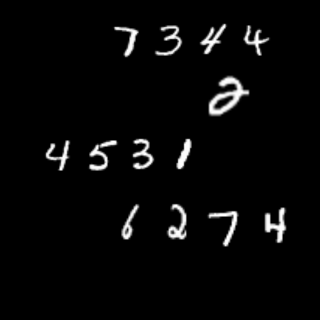 7 3 4 4
2
4 5 3 1
6 2 7 4